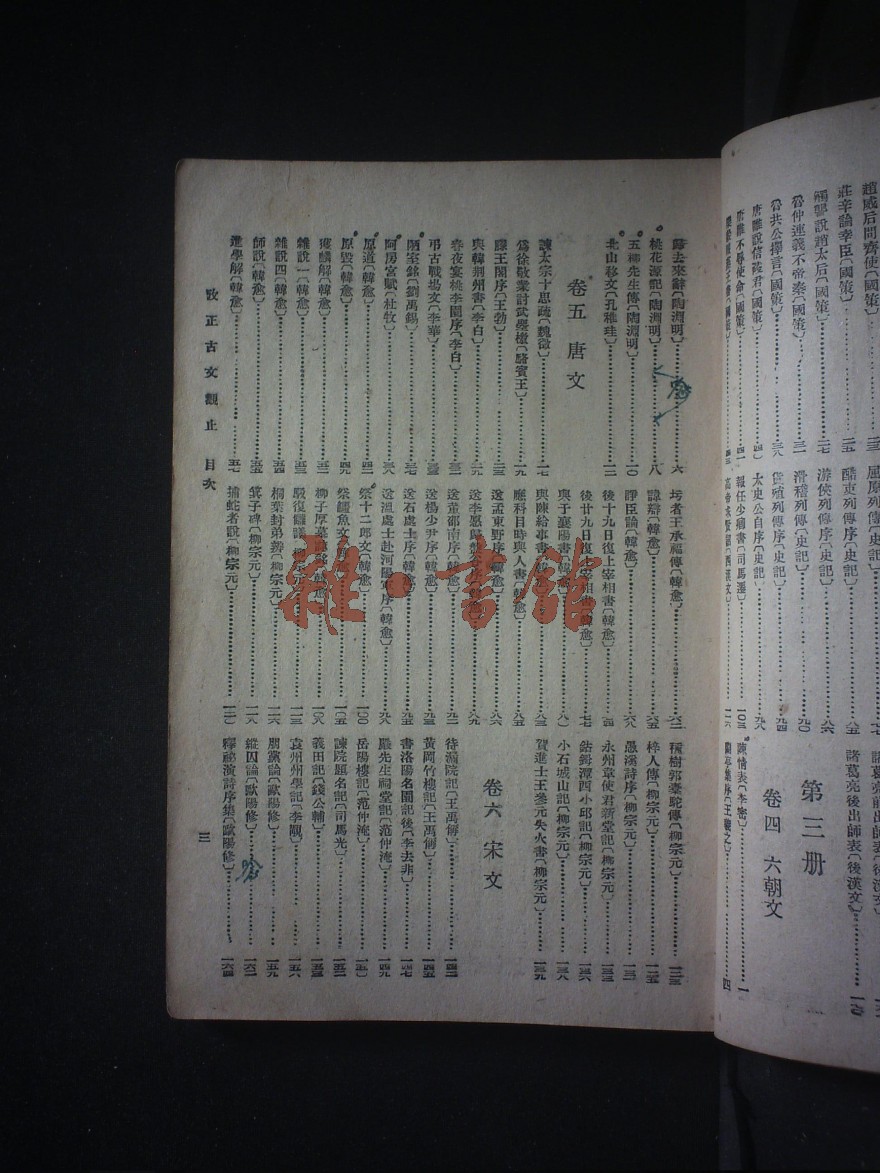 趙威后問齊使〔國策〕
莊辛論幸臣〔國策〕……二五
觸讋說趙太后〔國策〕……二七
魯仲連義不帝秦〔國策〕……三一
魯共公擇言〔國策〕……三八
唐雎說信陵君〔國策〕
唐雎不辱使命〔國策〕……四一
屈原列傳〔史記〕
酷吏列傳序〔史記〕……八五
游俠列傳序〔史記〕……八六
滑稽列傳〔史記〕……九〇
貨殖列傳序〔史記〕……九四
太史公自序〔史記〕……九八
報任少卿書〔司馬遷〕……一〇三
高帝求賢詔〔西漢文〕……一一六
諸葛亮前出師表〔後漢文〕
諸葛亮後出師表〔後漢文〕
第三册
卷四 六朝文
陳情表〔李密〕……一
蘭亭集序〔王羲之〕……四
歸去來辭〔陶淵明〕……六
桃花源記〔陶淵明〕……八
五柳先生傳〔陶淵明〕……一〇
北山移文〔孔稚珪〕……一二
卷五 唐文
諫太宗十思疏〔魏徵〕……一七
爲徐敬業討武曌檄〔駱賓王〕……一九
滕王閣序〔王勃〕……二三
與韓荆州書〔李白〕……二九
春夜宴桃李園序〔李白〕……三二
弔古戰場文〔李華〕……三三
陋室銘〔劉禹錫〕……三七
阿房宮賦〔杜牧〕……三八
原道〔韓愈〕……四二
原毀〔韓愈〕……四九
獲麟解〔韓愈〕……五二
雜說一〔韓愈〕……五三
雜說四〔韓愈〕……五四
師說〔韓愈〕……五五
進學解〔韓愈〕……五七
圬者王承福傳〔韓愈〕……六二
諱辯〔韓愈〕……六五
諍臣論〔韓愈〕……六八
後十九日復上宰相書〔韓愈〕……七四
後廿九日復上宰相書〔韓愈〕……七七
與于襄陽書〔韓愈〕……八一
與陳給事書〔韓愈〕……八三
應科目時與人書〔韓愈〕……八五
送孟東野序〔韓愈〕……八六
送李愿歸盤谷序〔韓愈〕……八九
送董邵南序〔韓愈〕……九二
送楊少尹序〔韓愈〕……九三
送石處士序〔韓愈〕……九五
送溫處士赴河陽軍序〔韓愈〕……九八
祭十二郎文〔韓愈〕……一〇〇
祭鱷魚文〔韓愈〕……一〇五
柳子厚墓誌銘〔韓愈〕……一〇八
駁復讎議〔柳宗元〕……一一三
桐葉封弟辨〔柳宗元〕……一一六
箕子碑〔柳宗元〕……一一八
捕蛇者說〔柳宗元〕……一二〇
種樹郭橐駝傳〔柳宗元〕……一二三
梓人傳〔柳宗元〕……一二五
愚溪詩序〔柳宗元〕……一三一
永州韋使君新堂記〔柳宗元〕……一三三
鈷鉧潭西小邱記〔柳宗元〕……一三六
小石城山記〔柳宗元〕……一三八
賀進士王參元失火書〔柳宗元〕……一三九
卷六 宋文
待漏院記〔王禹偁〕……一四二
黃岡竹樓記〔王禹偁〕……一四五
書洛陽名園記後〔李去非〕……一四七
嚴先生祠堂記〔范仲淹〕……一四九
岳陽樓記〔范仲淹〕……一五〇
諫院題名記〔司馬光〕……一五二
義田記〔錢公輔〕……一五三
袁州州學記〔李覯〕……一五六
朋黨論〔歐陽修〕……一五九
縱囚論〔歐陽修〕……一六二
釋祕演詩序集〔歐陽修〕……一六四
改正古文觀止 目次
三
雜·書館